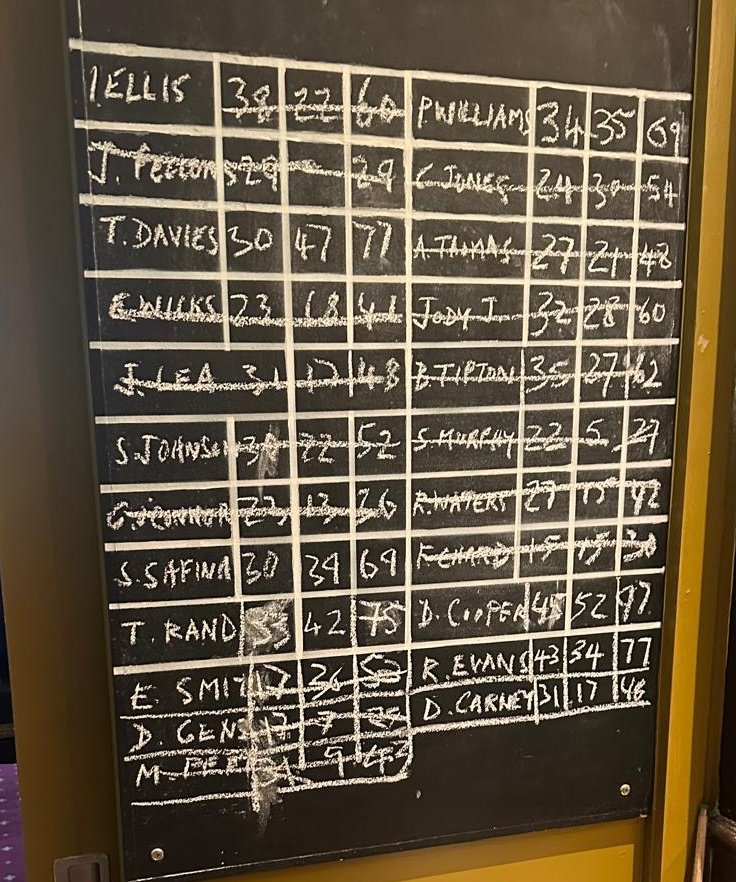 I.ELLIS 38 22 60 P WILLIAMS 34 35 69
J. 29 29 C JONES 24 30 54
T. DAVIES 30 47 77 A. 27 21 48
E WILKS 23 18 41 JODY J 32 28 60
J. LEA 31 17 48 B TIPTON 35 27 62
S. JOHNSON 30 22 52 S. MURPHY 22 5 27
G. O'CONNOR 23 13 36 R. WATERS 27 15 42
S. SAFINA 30 39 69 F CHARD 15 15 30
T. RAND 33 42 75 D. COOPER 45 52 97
E. SMIT 36 R. EVANS 43 34 77
D. GENS 17 7 D. CARNEY 31 17 48
M. 9